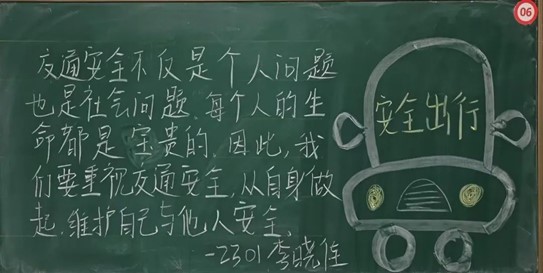 交通安全不仅是个人问题
也是社会问题.每个人的生
命都是宝贵的.因此,我
们要重视交通安全,从自身做
起.维护自己与他人安全.
-2301李晓佳
安全出行
06